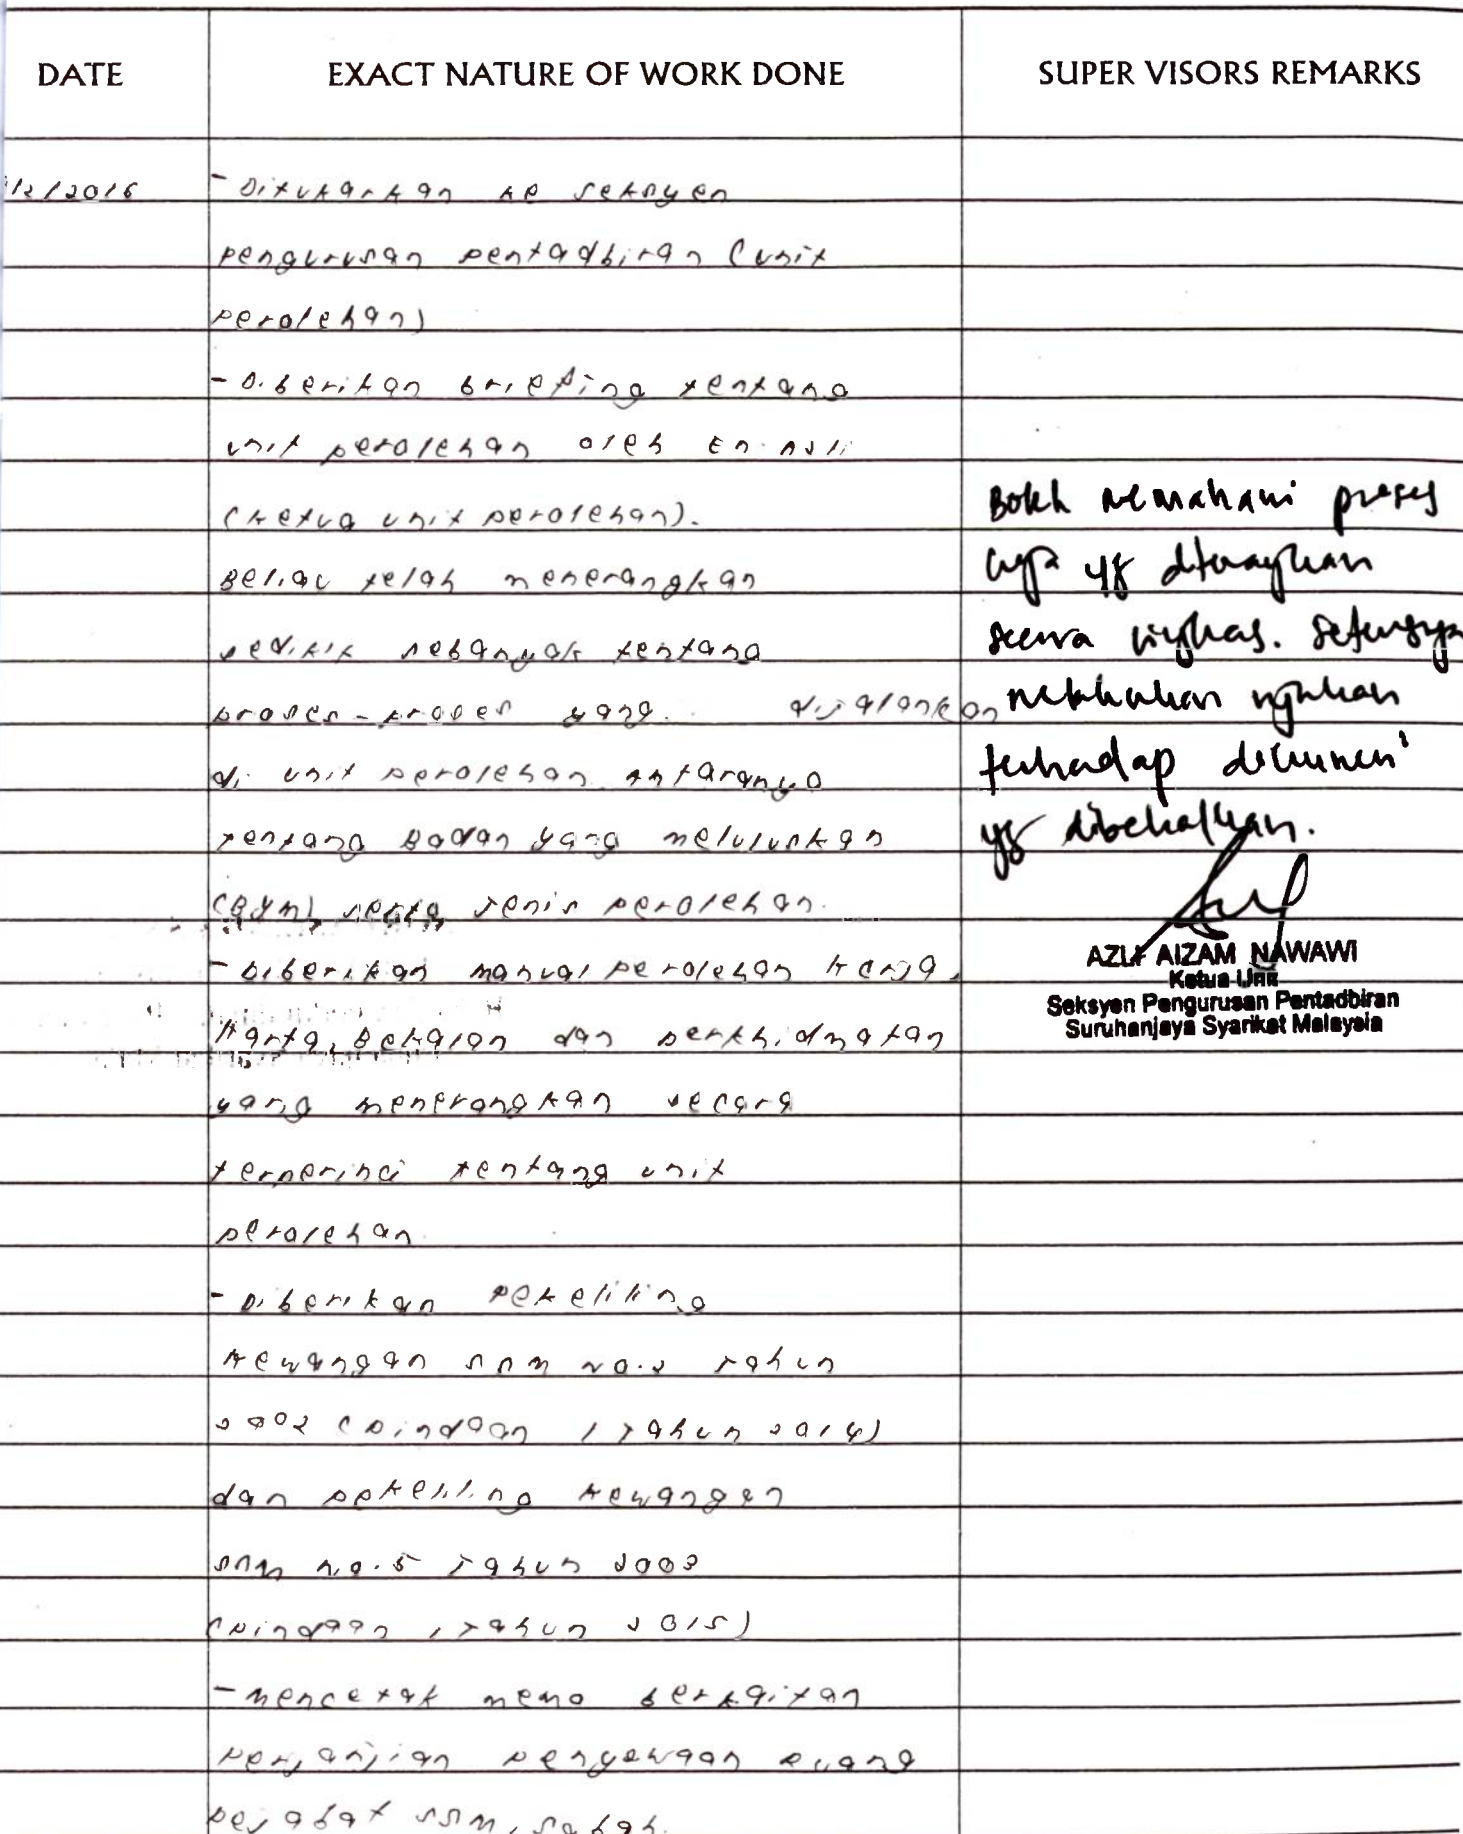 DATE
EXACT NATURE OF WORK DONE
SUPER VISORS REMARKS
12/2016
- Ditukarkan ke seksyen
pengurusan pentadbiran (unit
perolehan)
- Diberikan briefing tentang
unit perolehan oleh En.
(Ketua unit perolehan).
Beliau telah menerangkan
sedikit sebanyak tentang
proses-proses yang dijalankan
di unit perolehan antaranya
tentang Badan yang meluluskan
(BYM) serta jenis perolehan.
- Diberikan manual perolehan kerja,
Harta, Bekalan dan perkhidmatan
yang menerangkan secara
terperinci tentang unit
perolehan
- Diberikan Pekeliling
Kewangan SSM No.2 Tahun
2002 (Pindaan 1 Tahun 2014)
dan pekeliling kewangan
SSM no.5 Tahun 2003
(Pindaan 1 Tahun 2015)
- mencetak memo berkaitan
perjanjian penyewaan ruang
pejabat SSM, Sabah.
Boleh memahami proses
yg diterangkan
secara ringkas. Seterusnya
melakukan
terhadap dokumen
yg dibekalkan.
AZLF AIZAM NAWAWI
Ketua Unit
Seksyen Pengurusan Pentadbiran
Suruhanjaya Syarikat Malaysia